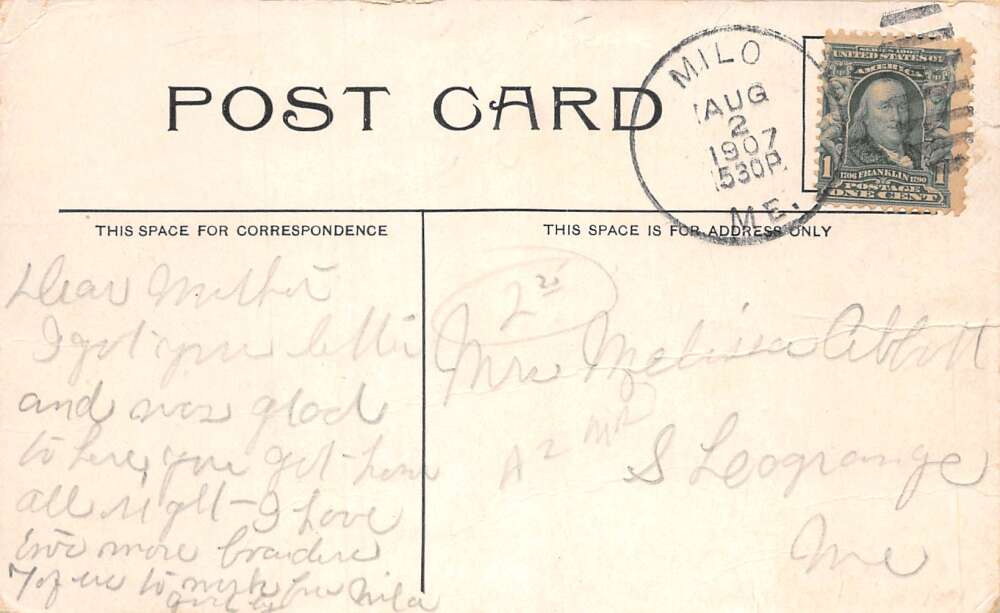 POST CARD
MILO
AUG
2
1907
530P.
ME.
SERIES 1902
UNITED STATES OF
AMERICA
1 1
1706 FRANKLIN 1790
POSTAGE
ONE CENT
THIS SPACE FOR CORRESPONDENCE
Dear Mother
I got your letter
and was glad
to here you got home
all right - I have
two more
7 of us to work for
THIS SPACE IS FOR ADDRESS ONLY
Mrs Melissa Abbott
S Leogrange
Me